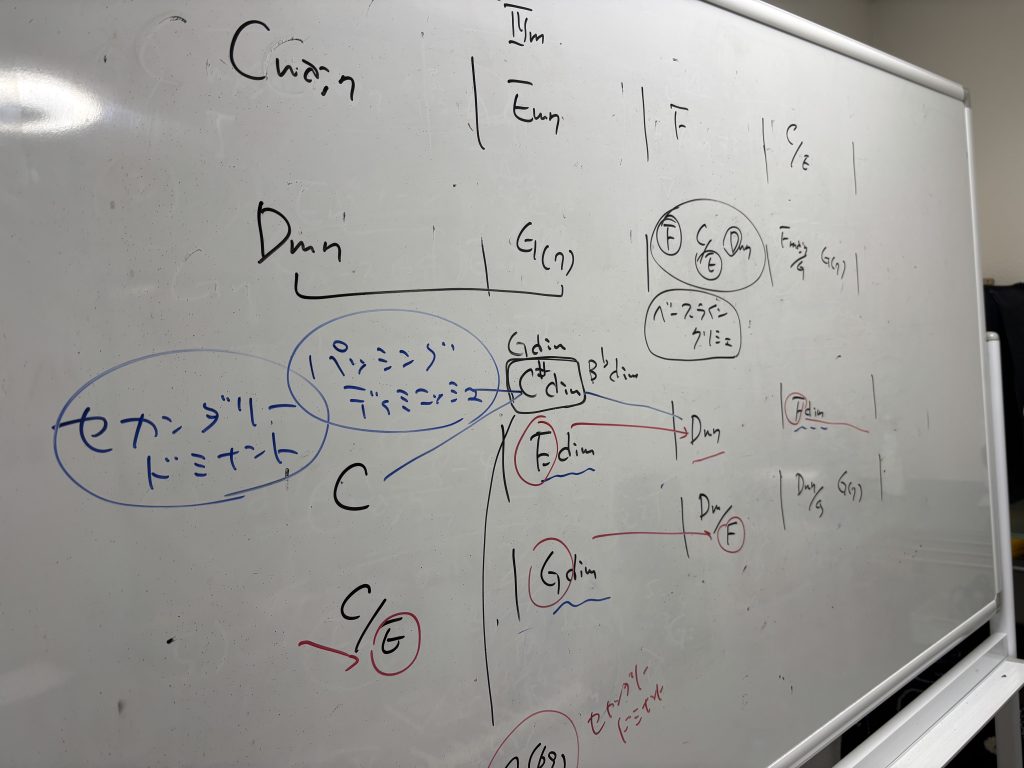 Cmaj7
IIIm
| Em7 | F | C/E |
Dm7 | G(7) | F C/E Dm7 | Fmaj7/G G(7) |
ベースライン
クリシェ
パッシング
ディミニッシュ
セカンダリー
ドミナント
Gdim
C#dim B♭dim
C | Edim | Dm7 |
C/E | Gdim | Dm/F | Dm7/G G(7) |
セカンダリー
ドミナント